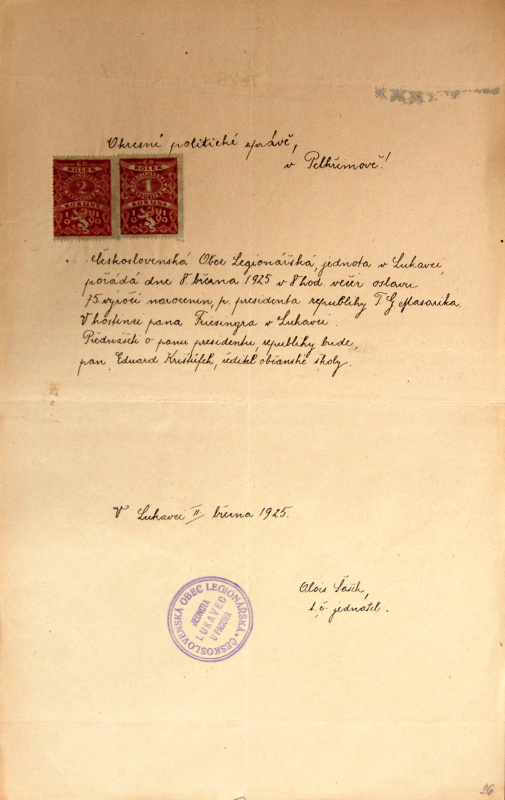 Okresní politické správě,
v Pelhřimově!
KOLEK
2
KORUNY
KOLEK
1
KORUNA
Československá Obec Legionářská, jednota v Lukavci,
pořádá dne 8 března 1925 v 8 hod večer oslavu
75 výročí narozenin, p. presidenta republiky T. G. Masarika
V hostinci pana Friesingra v Lukavci.
Přednášet o panu presidentu, republiky bude,
pan Eduard Krištůfek, ředitel občanské školy.
V Lukavci II března 1925.
Alois Šašek,
t. č. jednatel.
ČESKOSLOVENSKÁ OBEC LEGIONÁŘSKÁ
JEDNOTA
LUKAVEC
U PACOVA
26